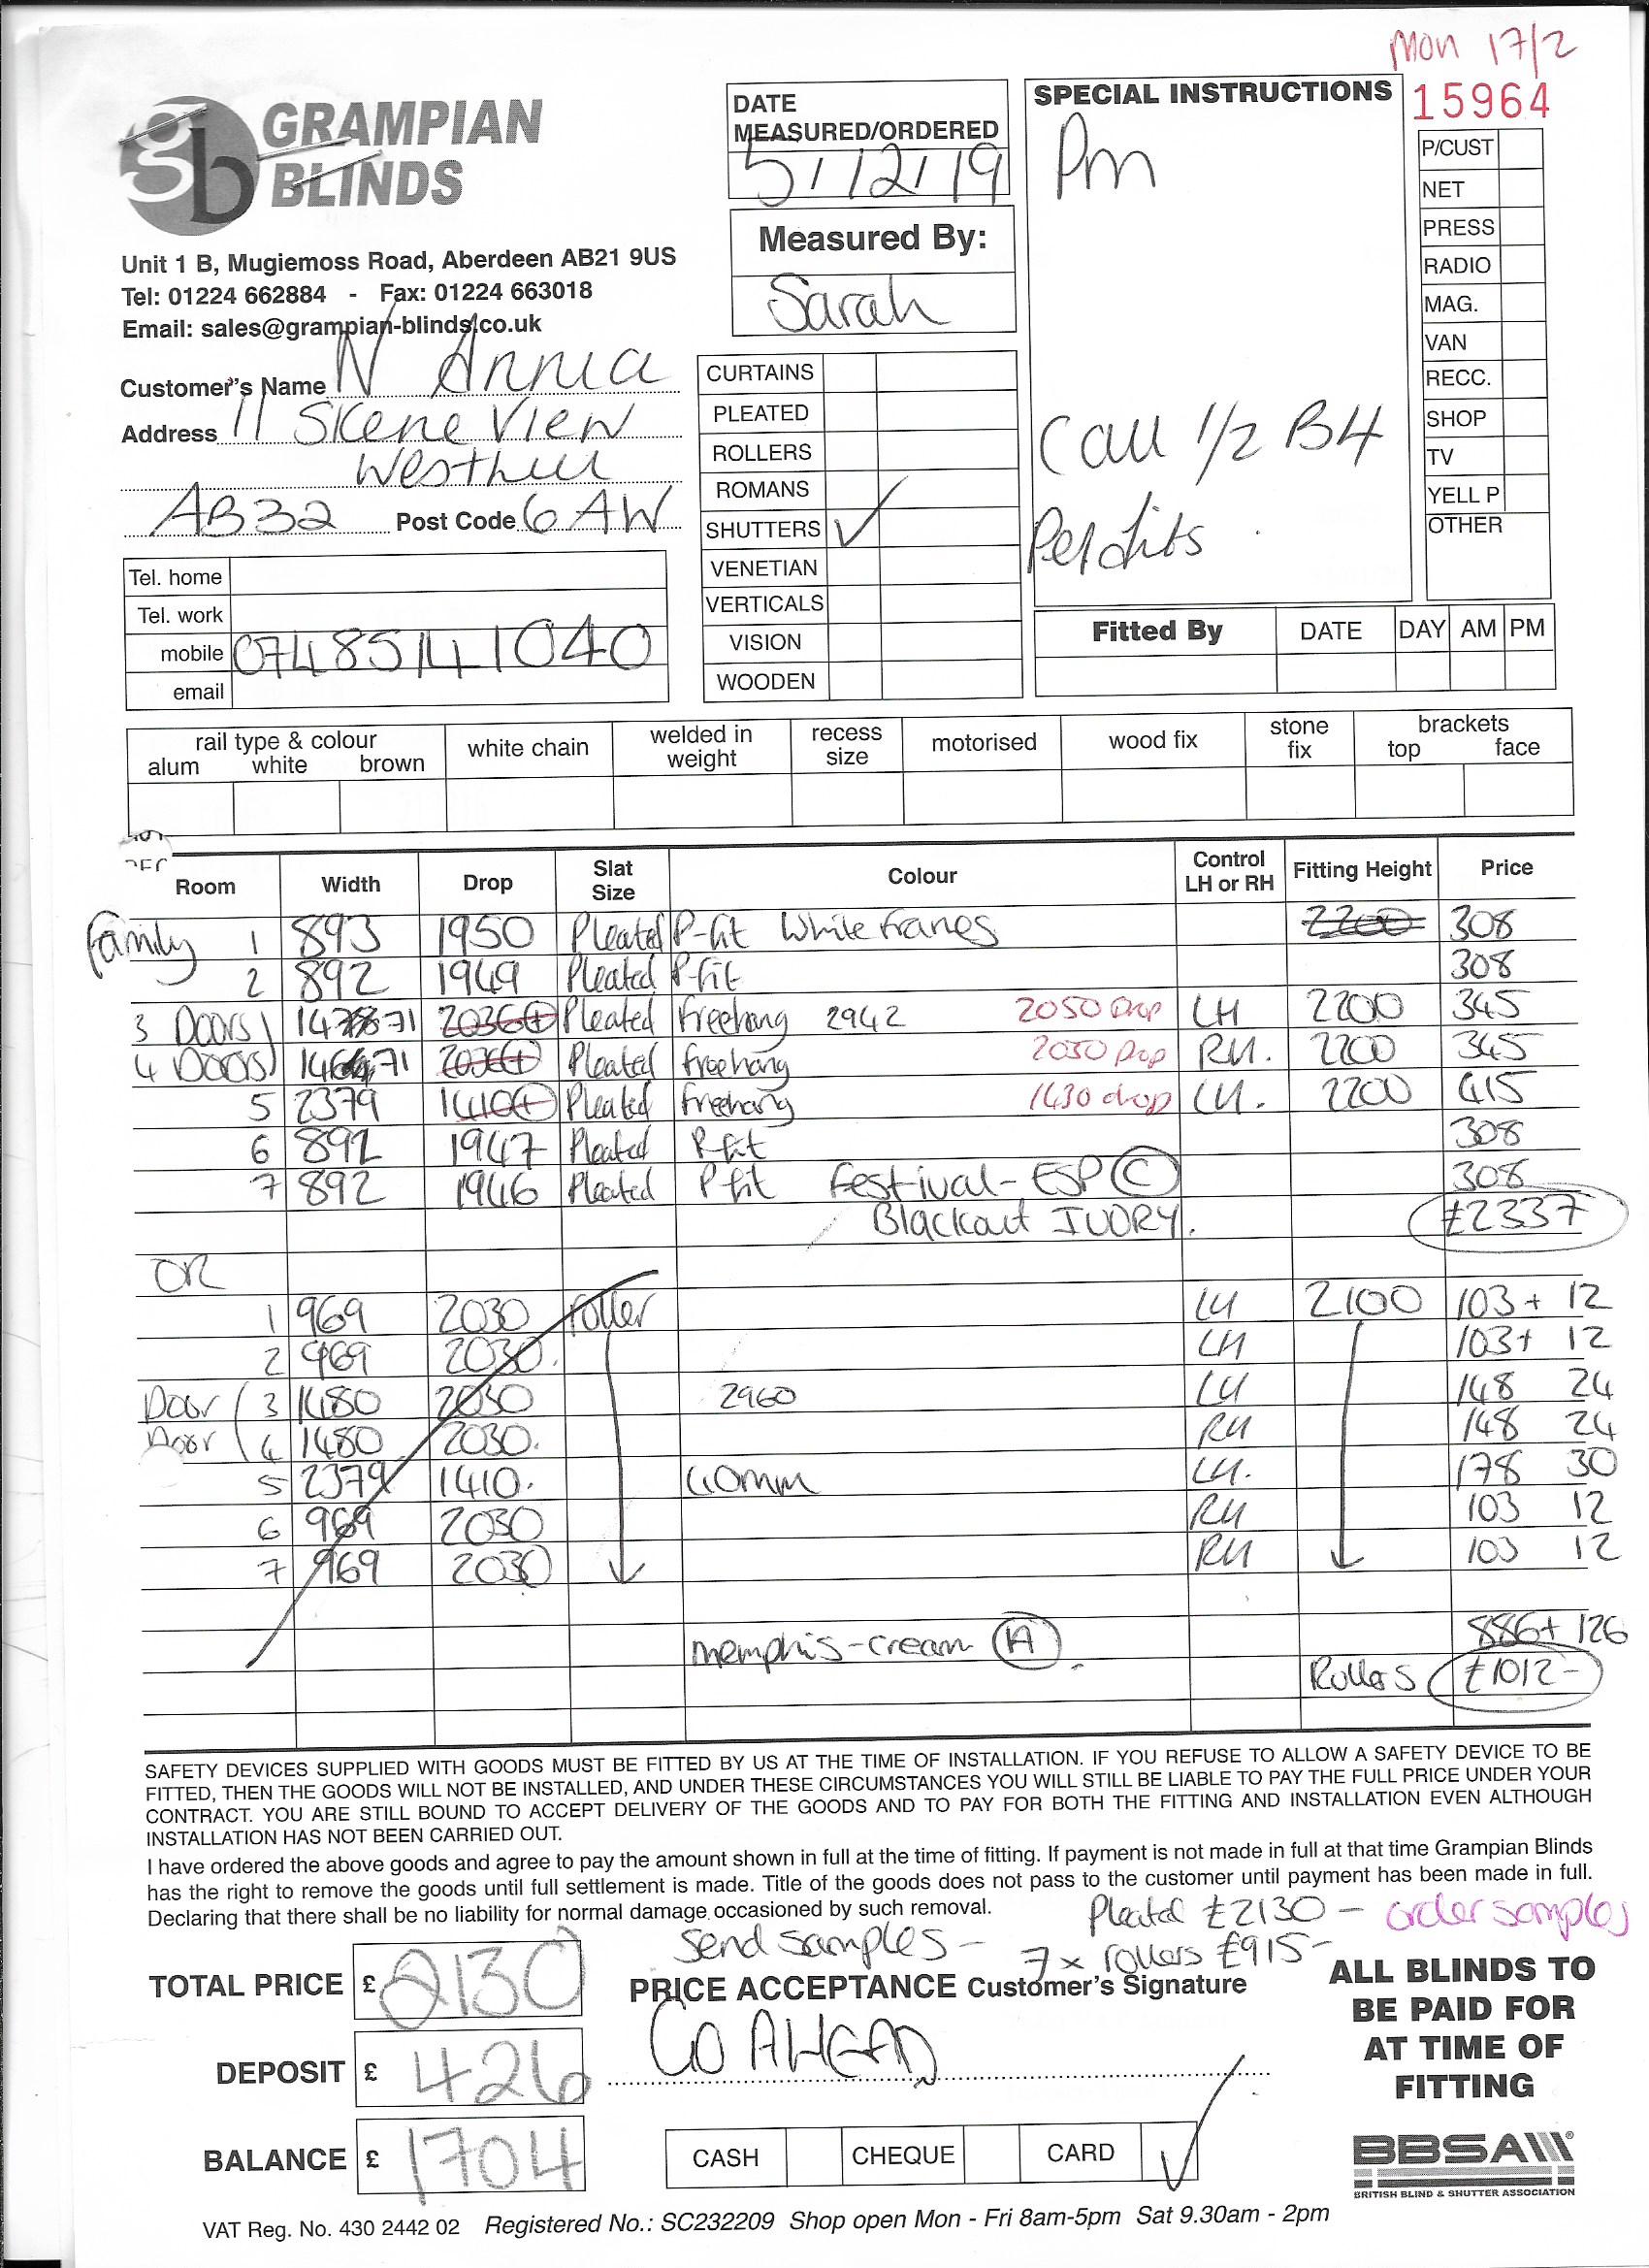 Mon 17/2
GRAMPIAN
BLINDS
Unit 1 B, Mugiemoss Road, Aberdeen AB21 9US
Tel: 01224 662884 - Fax: 01224 663018
Email: sales@grampian-blinds.co.uk
DATE
MEASURED/ORDERED
5/12/19
Measured By:
Sarah
SPECIAL INSTRUCTIONS
Pm
Call 1/2 B4
15964
P/CUST
NET
PRESS
RADIO
MAG.
VAN
RECC.
SHOP
TV
YELL P
OTHER
Customer's Name N Annia
Address 11 Skene View
Westhill
AB32 Post Code 6AW
Tel. home
Tel. work
mobile 07485141040
email
CURTAINS
PLEATED
ROLLERS
ROMANS
SHUTTERS ✓
VENETIAN
VERTICALS
VISION
WOODEN
Fitted By DATE DAY AM PM
rail type & colour
alum white brown
white chain
welded in weight
recess size
motorised
wood fix
stone fix
brackets
top face
Room Width Drop Slat Size Colour Control LH or RH Fitting Height Price
Family 1 893 1950 Pleated P-fit White frames 2200 308
2 892 1949 Pleated P-fit 308
3 Doors 2036+ Pleated freehang 2942 2050 Drop LH 2200 345
4 Doors 2036+ Pleated freehang 2050 Drop RH. 2200 345
5 2379 1410+ Pleated freehang 1430 drop LH. 2200 415
6 892 1947 Pleated P-fit 308
7 892 1946 Pleated P fit Festival-ESP C 308
Blackout IVORY. £2337
OR
1 969 2030 roller LH 2100 103+ 12
2 969 2030. LH 103+ 12
Door 3 1480 2030 2960 LH 148 24
Door 4 1480 2030. RH 148 24
5 2379 1410. 40mm LH. 178 30
6 969 2030 RH 103 12
7 969 2030 RH 103 12
886+ 126
memphis-cream A
Rollers £1012-
SAFETY DEVICES SUPPLIED WITH GOODS MUST BE FITTED BY US AT THE TIME OF INSTALLATION. IF YOU REFUSE TO ALLOW A SAFETY DEVICE TO BE
FITTED, THEN THE GOODS WILL NOT BE INSTALLED, AND UNDER THESE CIRCUMSTANCES YOU WILL STILL BE LIABLE TO PAY THE FULL PRICE UNDER YOUR
CONTRACT. YOU ARE STILL BOUND TO ACCEPT DELIVERY OF THE GOODS AND TO PAY FOR BOTH THE FITTING AND INSTALLATION EVEN ALTHOUGH
INSTALLATION HAS NOT BEEN CARRIED OUT.
I have ordered the above goods and agree to pay the amount shown in full at the time of fitting. If payment is not made in full at that time Grampian Blinds
has the right to remove the goods until full settlement is made. Title of the goods does not pass to the customer until payment has been made in full.
Declaring that there shall be no liability for normal damage occasioned by such removal.
Pleated £2130 - order samples
Send samples - 7 x rollers £915-
TOTAL PRICE £ 2130
PRICE ACCEPTANCE Customer's Signature
GO AHEAD
DEPOSIT £ 426
BALANCE £ 1704
CASH CHEQUE CARD ✓
ALL BLINDS TO
BE PAID FOR
AT TIME OF
FITTING
BBSA
BRITISH BLIND & SHUTTER ASSOCIATION
VAT Reg. No. 430 2442 02 Registered No.: SC232209 Shop open Mon - Fri 8am-5pm Sat 9.30am - 2pm